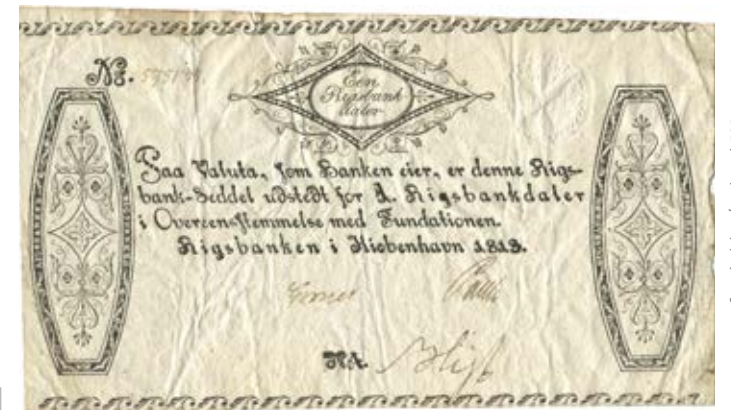 No.
Een
Rigsbank
daler
Paa Valuta, som Banken eier, er denne Rigs-
bank-Seddel udstedt for 1. Rigsbankdaler
i Overeensstemmelse med Fundationen.
Rigsbanken i Kiøbenhavn 1813.